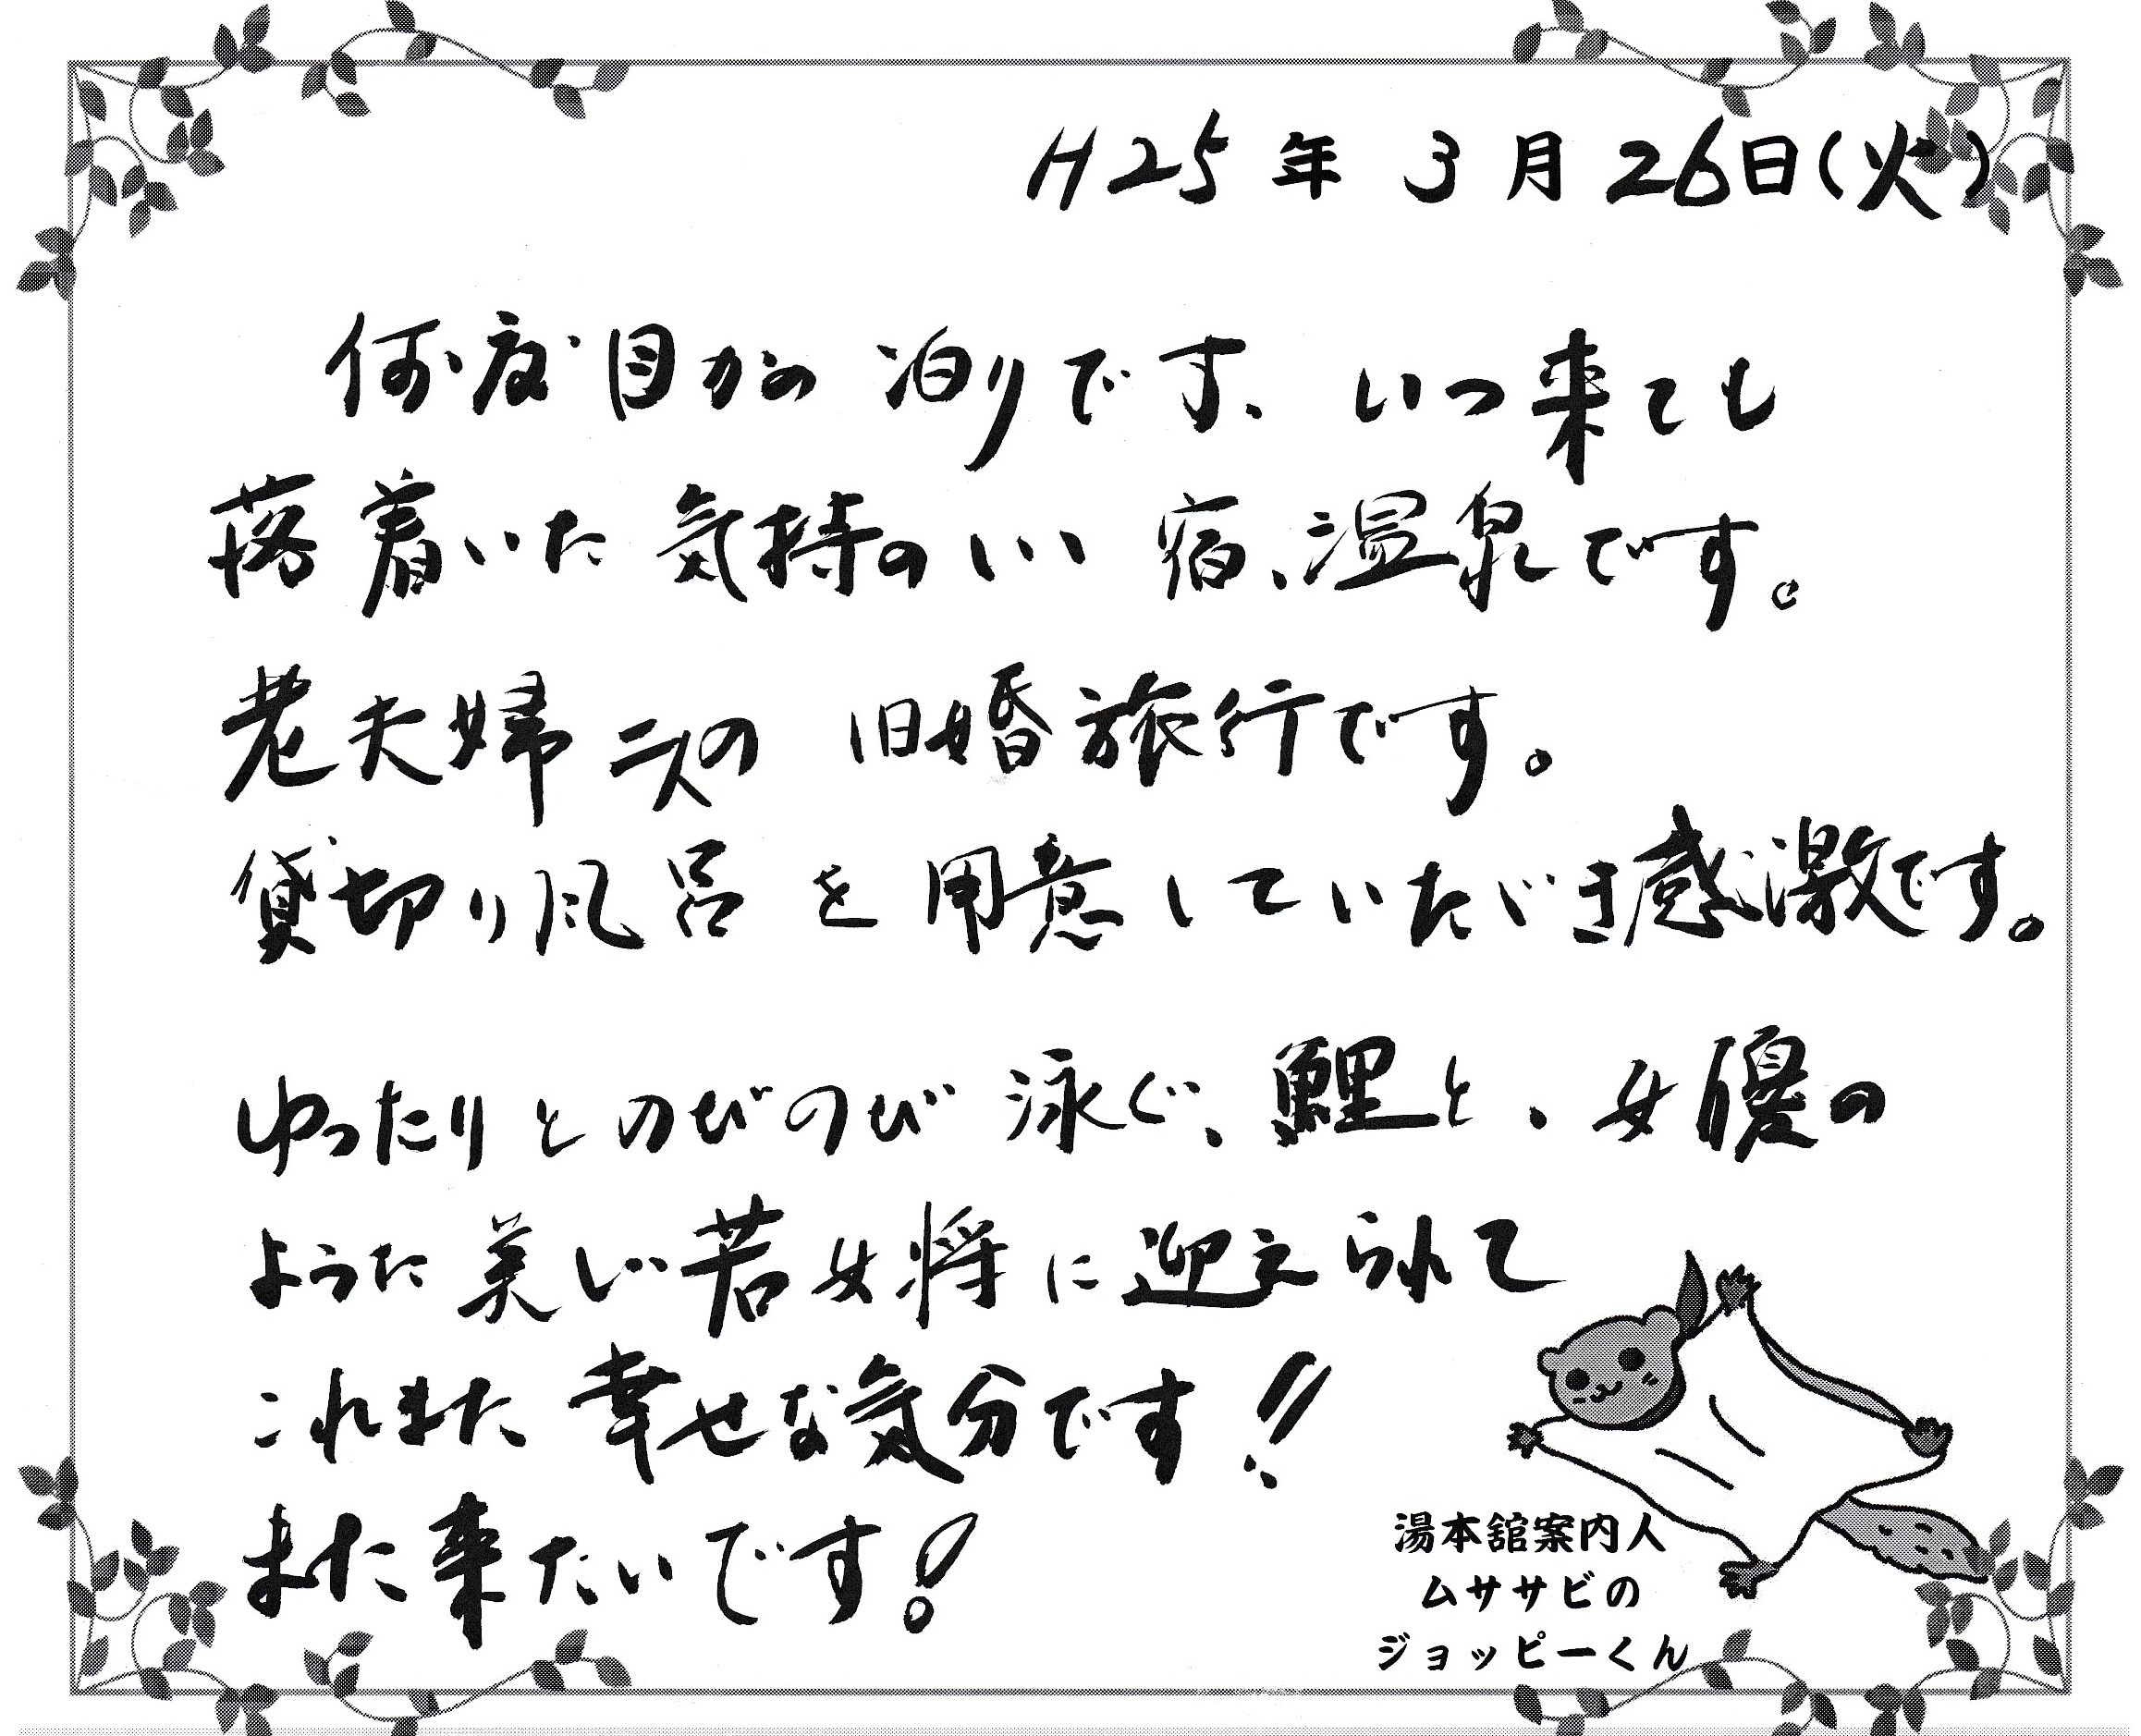 H25年3月26日(火)
何度目かの泊りです、いつ来ても
落着いた気持のいい宿、温泉です。
老夫婦二人の旧婚旅行です。
貸切り風呂を用意していただき感激です。
ゆったりとのびのび泳ぐ、鯉と、女優の
ような美しい若女将に迎えられて
これまた幸せな気分です!!
また来たいです!
湯本舘案内人
ムササビの
ジョッピーくん